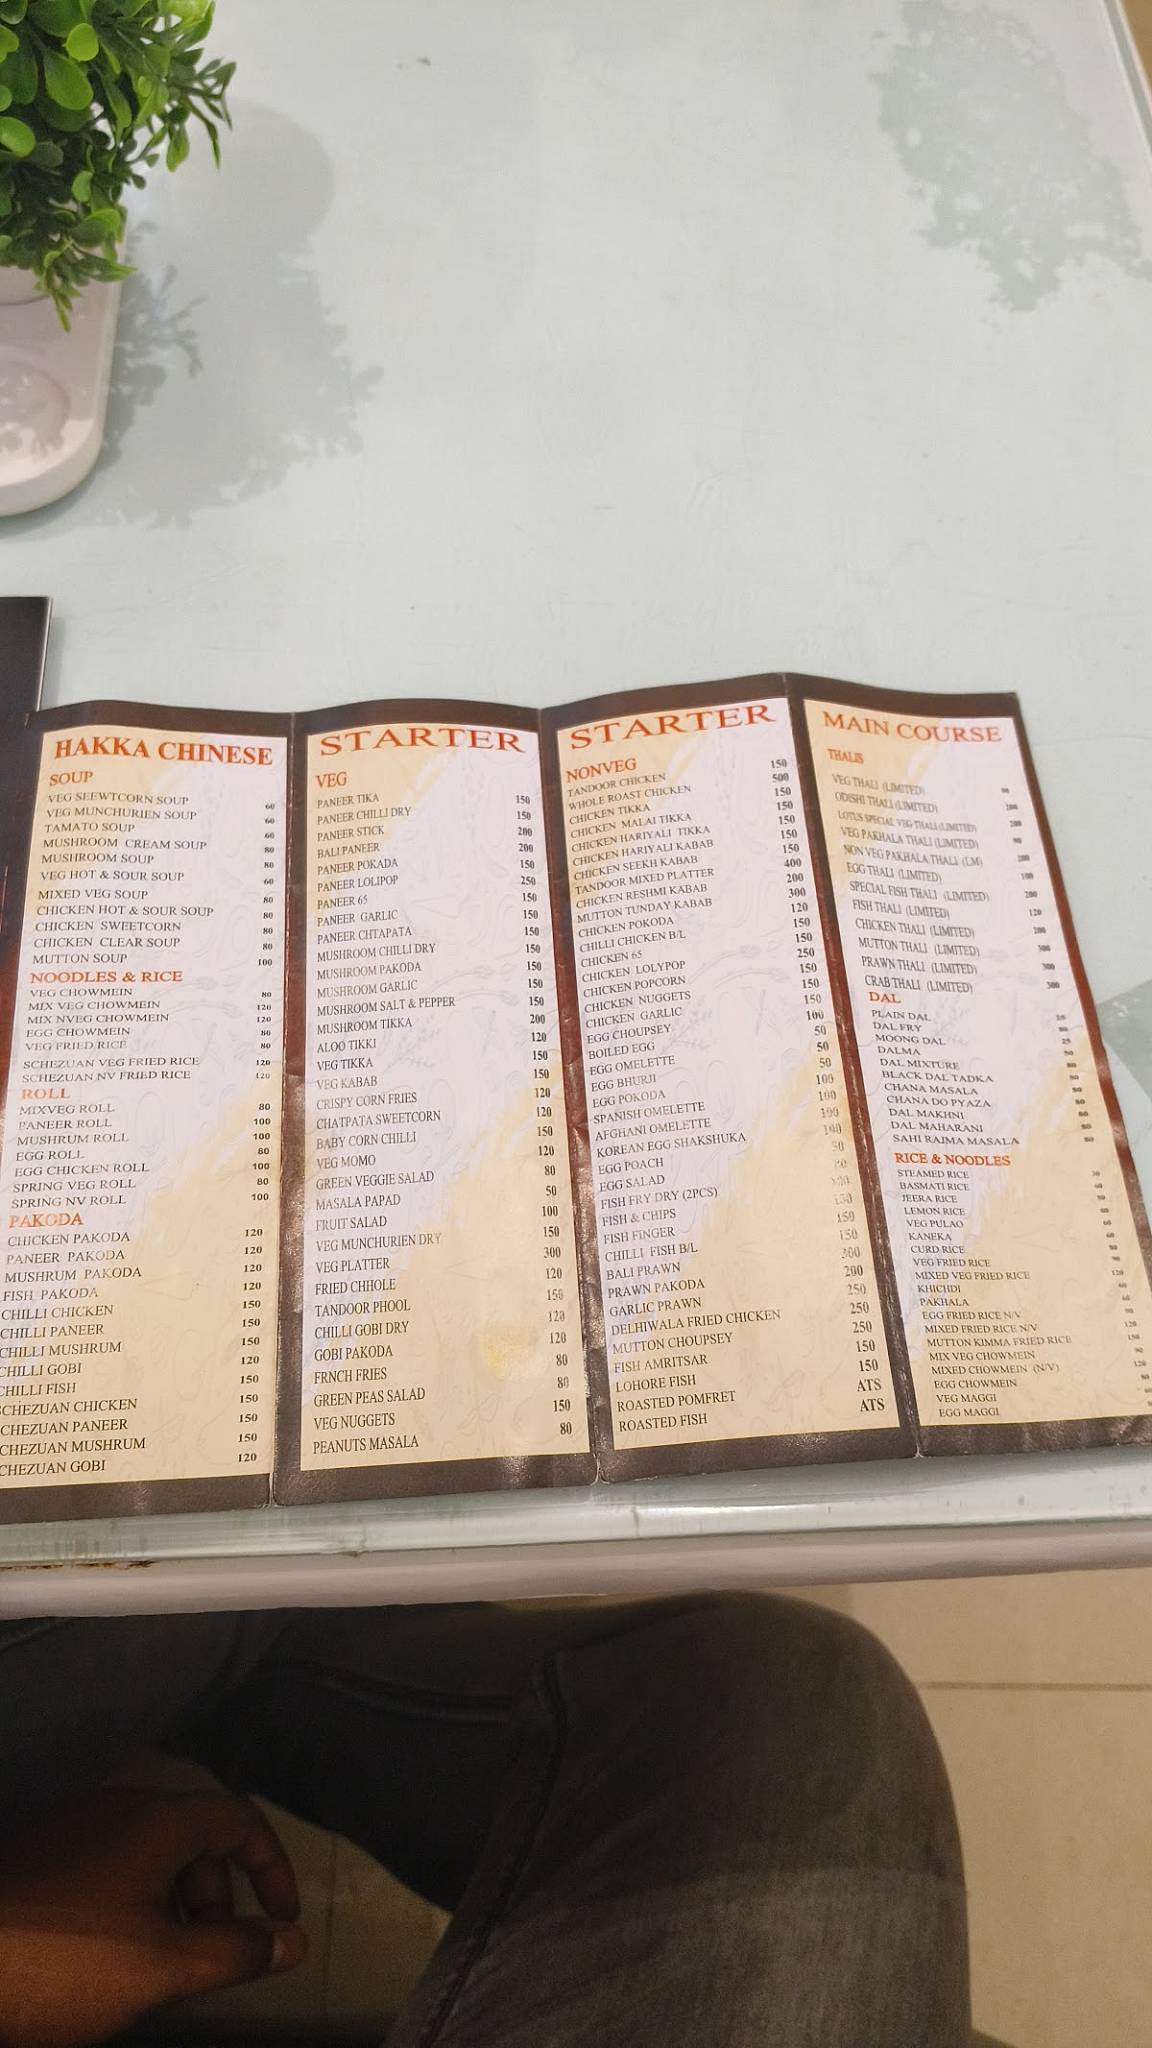 HAKKA CHINESE
SOUP
VEG SEEWTCORN SOUP 60
VEG MUNCHURIEN SOUP 60
TAMATO SOUP 60
MUSHROOM CREAM SOUP 80
MUSHROOM SOUP 80
VEG HOT & SOUR SOUP 60
MIXED VEG SOUP 80
CHICKEN HOT & SOUR SOUP 80
CHICKEN SWEETCORN 80
CHICKEN CLEAR SOUP 80
MUTTON SOUP 100
NOODLES & RICE
VEG CHOWMEIN 80
MIX VEG CHOWMEIN 120
MIX NVEG CHOWMEIN 120
EGG CHOWMEIN 80
VEG FRIED RICE 80
SCHEZUAN VEG FRIED RICE 120
SCHEZUAN NV FRIED RICE 120
ROLL
MIXVEG ROLL 80
PANEER ROLL 100
MUSHRUM ROLL 100
EGG ROLL 80
EGG CHICKEN ROLL 100
SPRING VEG ROLL 80
SPRING NV ROLL 100
PAKODA
CHICKEN PAKODA 120
PANEER PAKODA 120
MUSHRUM PAKODA 120
FISH PAKODA 120
CHILLI CHICKEN 150
CHILLI PANEER 150
CHILLI MUSHRUM 150
CHILLI GOBI 120
CHILLI FISH 150
CHEZUAN CHICKEN 150
CHEZUAN PANEER 150
CHEZUAN MUSHRUM 150
CHEZUAN GOBI 120
STARTER
VEG
PANEER TIKA 150
PANEER CHILLI DRY 150
PANEER STICK 200
BALI PANEER 200
PANEER POKADA 150
PANEER LOLIPOP 250
PANEER 65 150
PANEER GARLIC 150
PANEER CHTAPATA 150
MUSHROOM CHILLI DRY 150
MUSHROOM PAKODA 150
MUSHROOM GARLIC 150
MUSHROOM SALT & PEPPER 150
MUSHROOM TIKKA 200
ALOO TIKKI 120
VEG TIKKA 150
VEG KABAB 150
CRISPY CORN FRIES 120
CHATPATA SWEETCORN 120
BABY CORN CHILLI 150
VEG MOMO 120
GREEN VEGGIE SALAD 80
MASALA PAPAD 50
FRUIT SALAD 100
VEG MUNCHURIEN DRY 150
VEG PLATTER 300
FRIED CHHOLE 120
TANDOOR PHOOL 150
CHILLI GOBI DRY 120
GOBI PAKODA 120
FRNCH FRIES 80
GREEN PEAS SALAD 80
VEG NUGGETS 150
PEANUTS MASALA 80
STARTER
NONVEG
TANDOOR CHICKEN 150
WHOLE ROAST CHICKEN 500
CHICKEN TIKKA 150
CHICKEN MALAI TIKKA 150
CHICKEN HARIYALI TIKKA 150
CHICKEN HARIYALI KABAB 150
CHICKEN SEEKH KABAB 150
TANDOOR MIXED PLATTER 400
CHICKEN RESHMI KABAB 200
MUTTON TUNDAY KABAB 300
CHICKEN POKODA 120
CHILLI CHICKEN B/L 150
CHICKEN 65 150
CHICKEN LOLYPOP 250
CHICKEN POPCORN 150
CHICKEN NUGGETS 150
CHICKEN GARLIC 150
EGG CHOUPSEY 100
BOILED EGG 50
EGG OMELETTE 50
EGG BHURJI 50
EGG POKODA 100
SPANISH OMELETTE 100
AFGHANI OMELETTE 100
KOREAN EGG SHAKSHUKA 100
EGG POACH
EGG SALAD
FISH FRY DRY (2PCS)
FISH & CHIPS
FISH FINGER 150
CHILLI FISH B/L 150
BALI PRAWN 300
PRAWN PAKODA 200
GARLIC PRAWN 250
DELHIWALA FRIED CHICKEN 250
MUTTON CHOUPSEY 250
FISH AMRITSAR 150
LOHORE FISH 150
ROASTED POMFRET ATS
ROASTED FISH ATS
MAIN COURSE
THALIS
VEG THALI (LIMITED)
ODISHI THALI (LIMITED)
LOTUS SPECIAL VEG THALI (LIMITED)
VEG PAKHALA THALI (LIMITED)
NON VEG PAKHALA THALI (LM)
EGG THALI (LIMITED)
SPECIAL FISH THALI (LIMITED)
FISH THALI (LIMITED)
CHICKEN THALI (LIMITED)
MUTTON THALI (LIMITED)
PRAWN THALI (LIMITED)
CRAB THALI (LIMITED)
DAL
PLAIN DAL
DAL FRY
MOONG DAL
DALMA
DAL MIXTURE
BLACK DAL TADKA
CHANA MASALA
CHANA DO PYAZA
DAL MAKHNI
DAL MAHARANI
SAHI RAJMA MASALA
RICE & NOODLES
STEAMED RICE
BASMATI RICE
JEERA RICE
LEMON RICE
VEG PULAO
KANEKA
CURD RICE
VEG FRIED RICE
MIXED VEG FRIED RICE
KHICHDI
PAKHALA
EGG FRIED RICE N/V
MIXED FRIED RICE N/V
MUTTON KIMMA FRIED RICE
MIX VEG CHOWMEIN
MIXED CHOWMEIN (N/V)
EGG CHOWMEIN
VEG MAGGI
EGG MAGGI